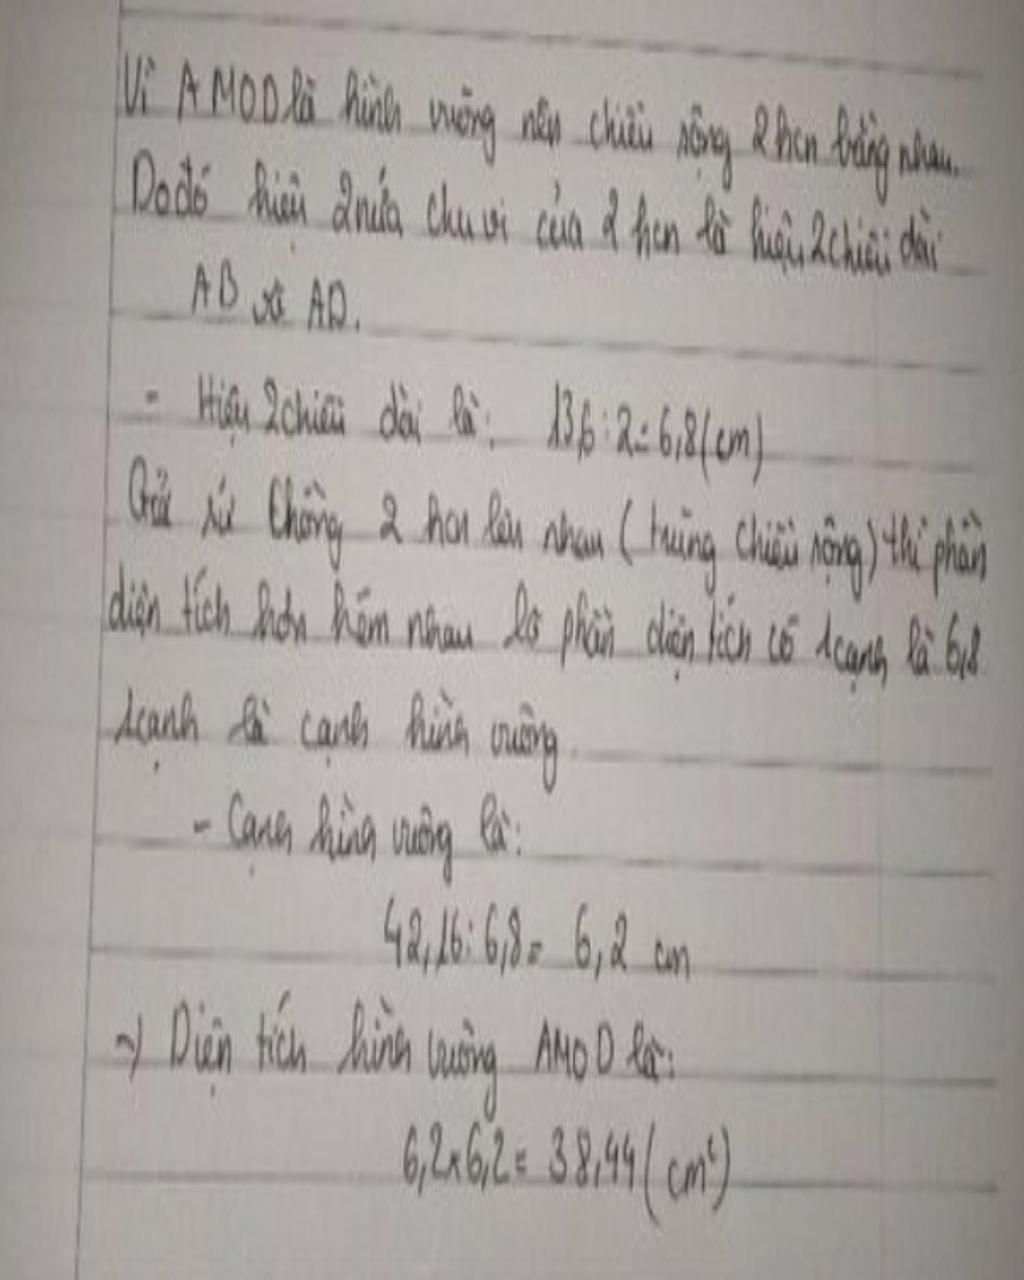 Vì AMOD là hình vuông nên chiều rộng 2 hcn bằng nhau.
Do đó hiệu 2 nửa chu vi của 2 hcn là hiệu 2 chiều dài
AB và AD.
- Hiệu 2 chiều dài là: 13,6 : 2 = 6,8 (cm)
Giả sử chồng 2 hcn lên nhau (trùng chiều rộng) thì phần
diện tích hơn kém nhau là phần diện tích có 1 cạnh là 6,8
1 cạnh là cạnh hình vuông.
- Cạnh hình vuông là:
42,16 : 6,8 = 6,2 cm
=) Diện tích hình vuông AMOD là:
6,2 x 6,2 = 38,44 (cm²)